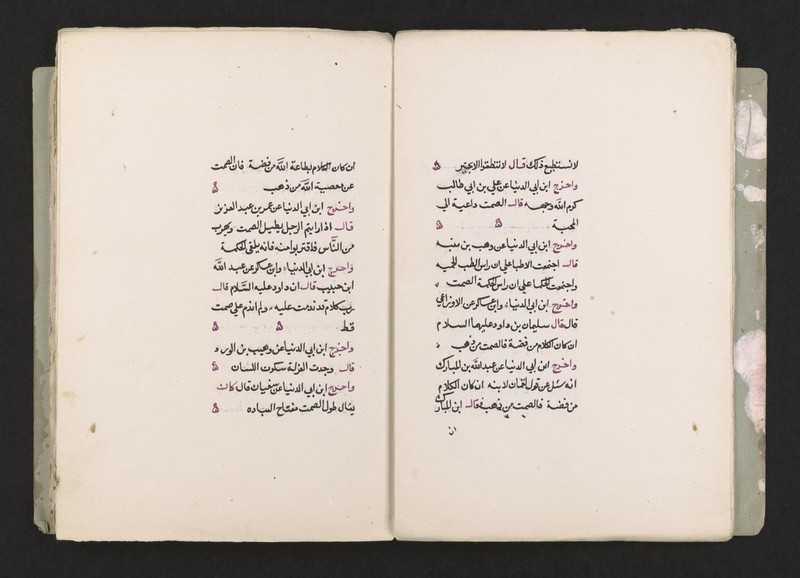 لا نستطيع ذلك قال لا تنطقوا الا بخير
واخرج ابن ابي الدنيا عن علي بن ابي طالب
كرم الله وجهه قال الصمت داعية الي
المحبة
واخرج ابن ابي الدنيا عن وهب بن منبه
قال اجتمعت الاطبا علي ان راس الطب الحمية
واجتمعت الحكما علي ان راس الحكمة الصمت
واخرج ابن ابي الدنيا وابن عساكر عن الاوزاعي
قال قال سليمان بن داود عليهما السلام
ان كان الكلام من فضة فالصمت من ذهب
واخرج ابن ابي الدنيا عن عبد الله بن المبارك
انه سئل عن قول لقمان لابنه ان كان الكلام
من فضة فالصمت من ذهب فقال ابن المبارك
ان
ان كان الكلام بطاعة الله من فضة فان الصمت
عن معصية الله من ذهب
واخرج ابن ابي الدنيا عن عمر بن عبد العزيز
قال اذا رايتم الرجل يطيل الصمت ويهرب
من الناس فاقتربوا منه فانه يلقي الحكمة
واخرج ابن ابي الدنيا وابن عساكر عن عبد الله
ابن حبيب قال ان داود عليه السلام قال
رب كلام قد ندمت عليه ولم اندم علي صمت
قط
واخرج ابن ابي الدنيا عن وهيب بن الورد
قال وجدت العزلة سكون اللسان
واخرج ابن ابي الدنيا عن سفيان قال كان
يقال طول الصمت مفتاح العباده